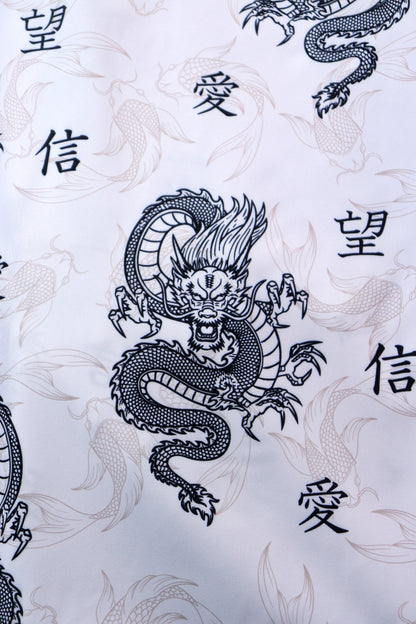 望
愛
信
望
信
愛